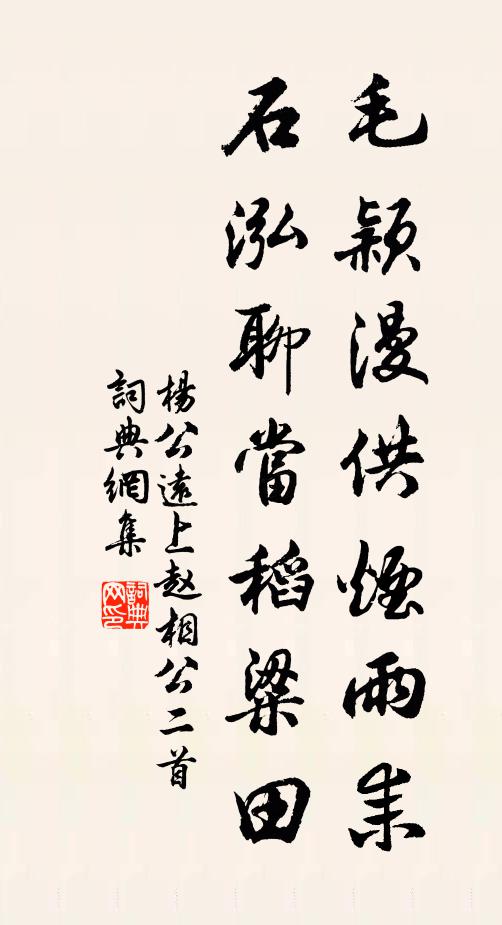 毛颖漫供煙雨耒
石泓聊當稻粱田
楊公遠上赵相公二首
詞典網集
詞典
网印